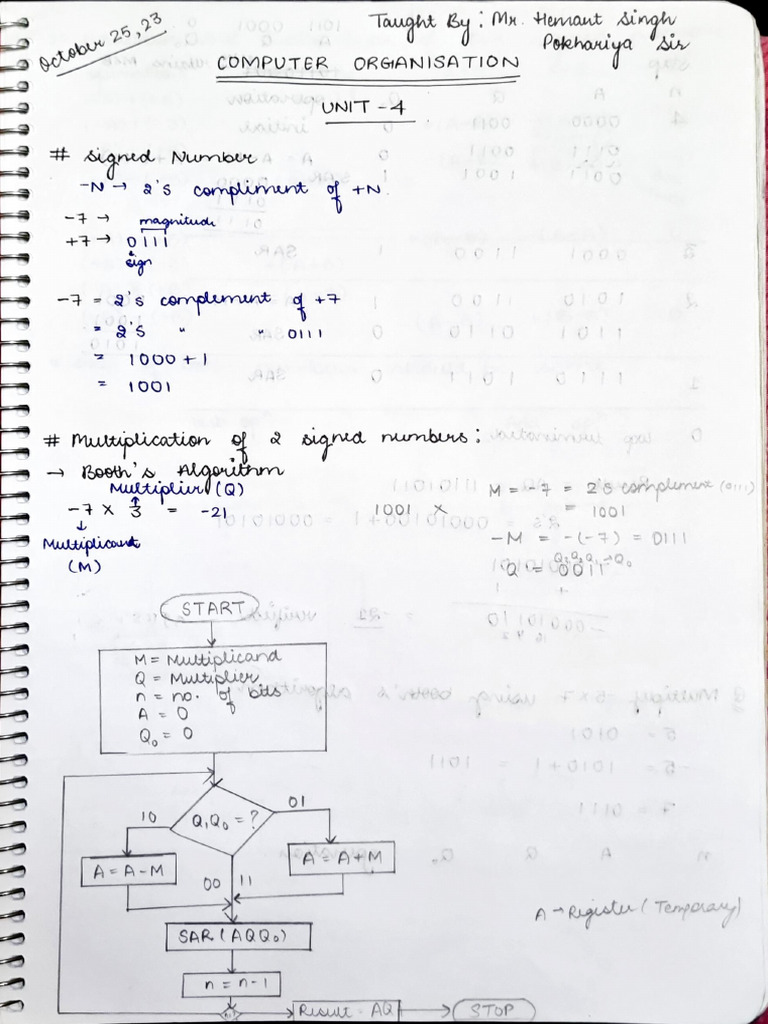 October 25, 23
Taught By: Mr. Hemant Singh
Pokhariya Sir
COMPUTER ORGANISATION
UNIT - 4
# Signed Number
-N → 2's compliment of +N
-7 →
magnitude
+7 → 0111
sign
-7 = 2's complement of +7
= 2's " " 0111
= 1000 + 1
= 1001
# Multiplication of 2 signed numbers:
→ Booth's Algorithm
Multiplier (Q)
-7 × 3 = -21
Multiplicand
(M)
1001 ×
M = -7 = 2's complement (0111)
= 1001
-M = -(-7) = 0111
Q = 0011
START
M = Multiplicand
Q = Multiplier
n = no. of bits
A = 0
Q₀ = 0
Q₁Q₀ = ?
10
01
A = A - M
A = A + M
00 11
SAR (AQQ₀)
n = n - 1
A → Register (Temporary)
Result = AQ
STOP